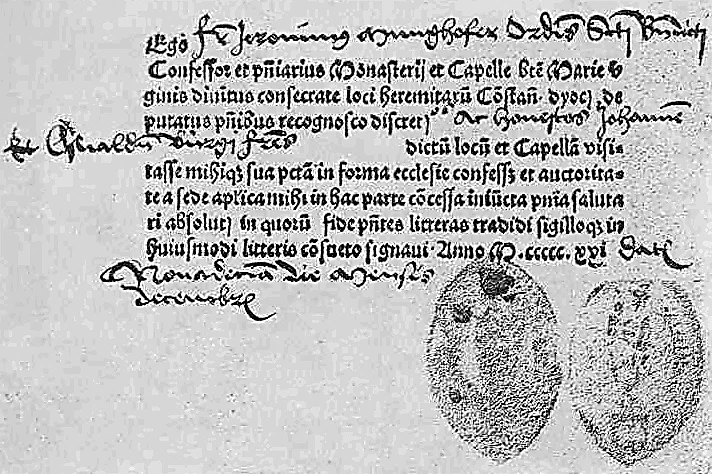 Ego fr̄ Jeronimus Munghofer Ordīs Sctī Bn̄dicti
Confessor et pn̄iarius Monasterij et Capelle btē Marie v
ginis diuitus consecrate loci heremitarū Cōstan̄. dyoc̄. de
putatus pn̄ibus recognosco discret⁹ ac honestos Johannē
et Osualdū Burgi frēs dictū locū et Capellā visi⸗
tasse mihiqꝫ sua pctā in forma ecclesie confessꝫ et auctorita⸗
te a sede aplica mihi in hac parte cōcessa iniūcta pn̄ia saluta
ri absolui in quorū fide pn̄tes litteras tradidi sigilloqꝫ in
huiusmodi litteris cōsueto signaui. Anno M.ccccc.xxi Dat
Nonadecima die Mensis
decembr